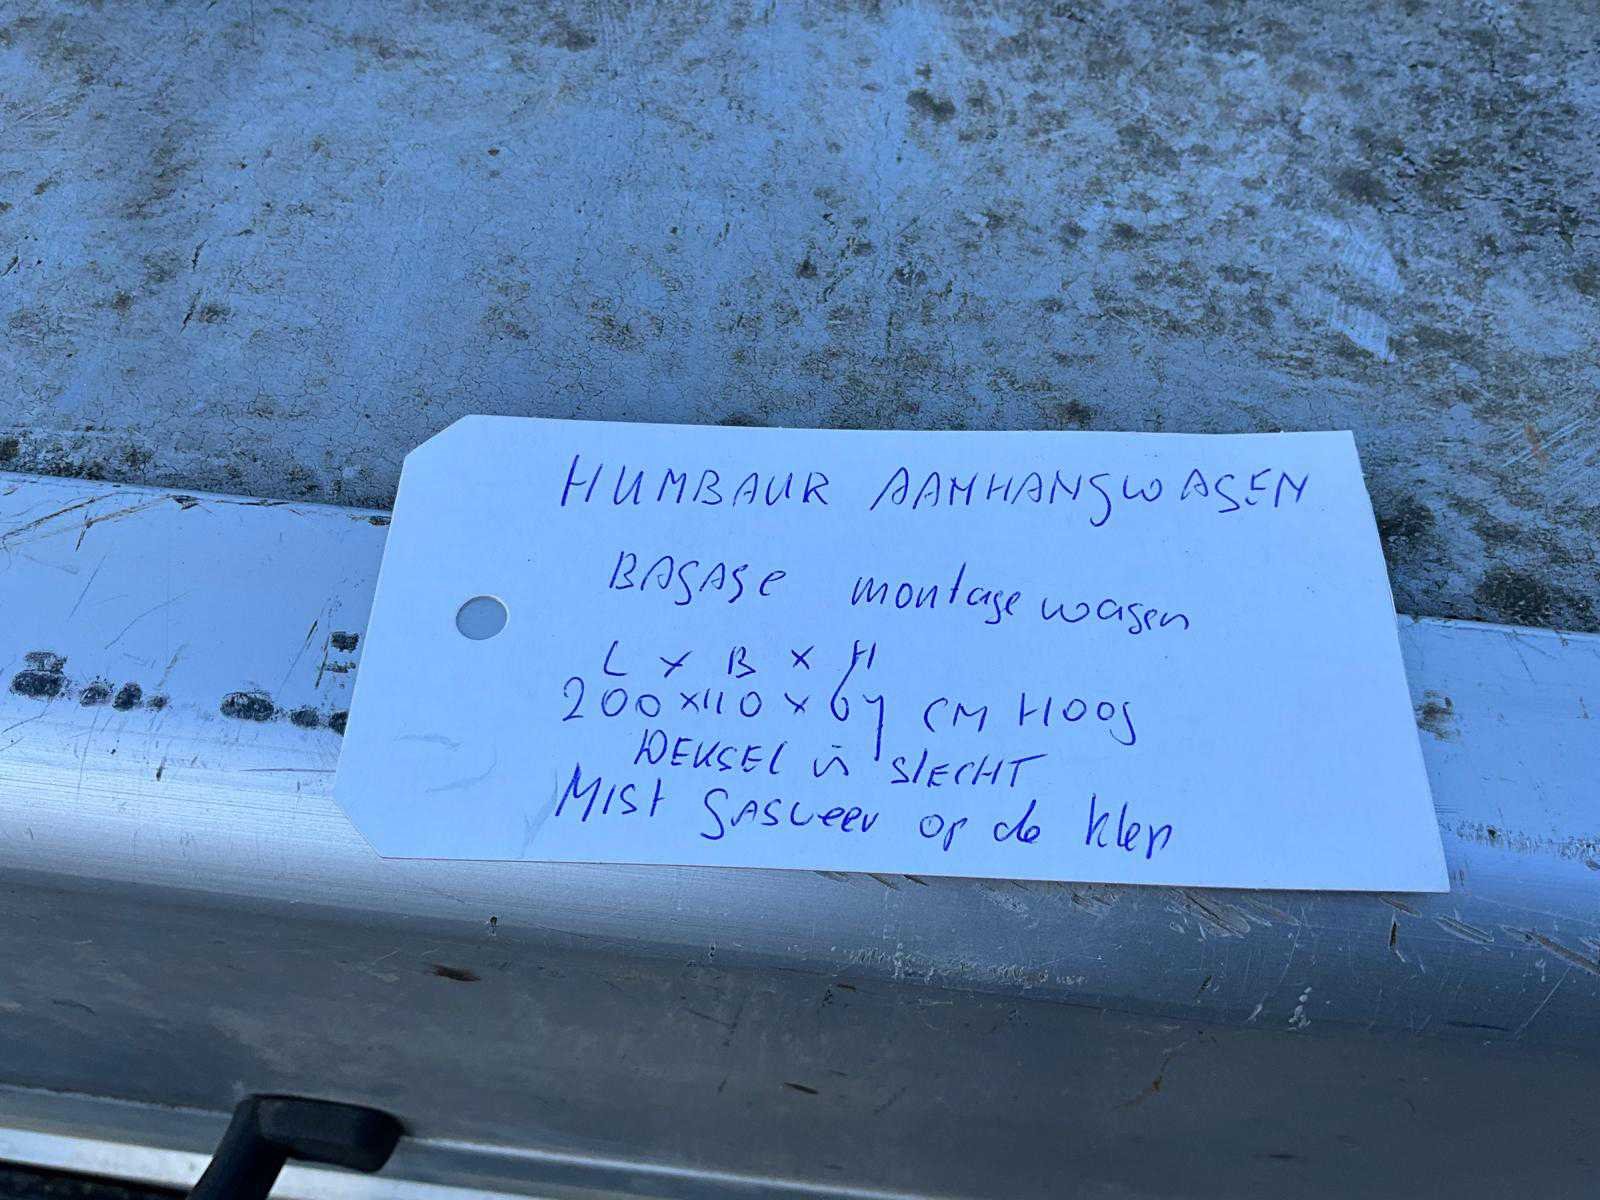 HUMBAUR AANHANGWAGEN
BAGAGE montage wagen
L x B x H
200 x 110 x 67 CM HOOG
DEKSEL is SlECHT
MIST GASveer op de klep